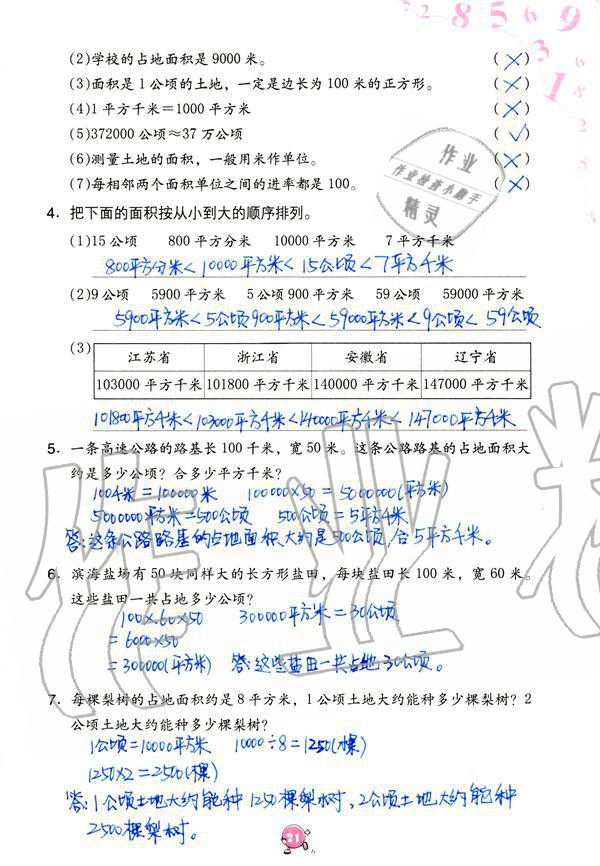 3 2 8 5 6 9
(2)学校的占地面积是 9000 米。 (×)
(3)面积是 1 公顷的土地，一定是边长为 100 米的正方形。 (×)
(4)1 平方千米＝1000 平方米 (×)
(5)372000 公顷≈37 万公顷 (√)
(6)测量土地的面积，一般用米作单位。 (×)
(7)每相邻两个面积单位之间的进率都是 100。 (×)
作业
作业检查小助手
精灵
4. 把下面的面积按从小到大的顺序排列。
(1)15 公顷 800 平方分米 10000 平方米 7 平方千米
800平方分米＜10000平方米＜15公顷＜7平方千米
(2)9 公顷 5900 平方米 5 公顷 900 平方米 59 公顷 59000 平方米
5900平方米＜5公顷900平方米＜59000平方米＜9公顷＜59公顷
(3)
江苏省 浙江省 安徽省 辽宁省
103000 平方千米 101800 平方千米 140000 平方千米 147000 平方千米
101800平方千米＜103000平方千米＜140000平方千米＜147000平方千米
5. 一条高速公路的路基长 100 千米，宽 50 米。这条公路路基的占地面积大
约是多少公顷？合多少平方千米？
100千米＝100000米 100000×50＝5000000(平方米)
5000000平方米＝500公顷 500公顷＝5平方千米
答：这条公路路基的占地面积大约是500公顷，合5平方千米。
6. 滨海盐场有 50 块同样大的长方形盐田，每块盐田长 100 米，宽 60 米。
这些盐田一共占地多少公顷？
100×60×50 300000平方米＝30公顷
＝6000×50
＝300000(平方米) 答：这些盐田一共占地30公顷。
7. 每棵梨树的占地面积约是 8 平方米，1 公顷土地大约能种多少棵梨树？2
公顷土地大约能种多少棵梨树？
1公顷＝10000平方米 10000÷8＝1250(棵)
1250×2＝2500(棵)
答：1公顷土地大约能种1250棵梨树，2公顷土地大约能种
2500棵梨树。
21